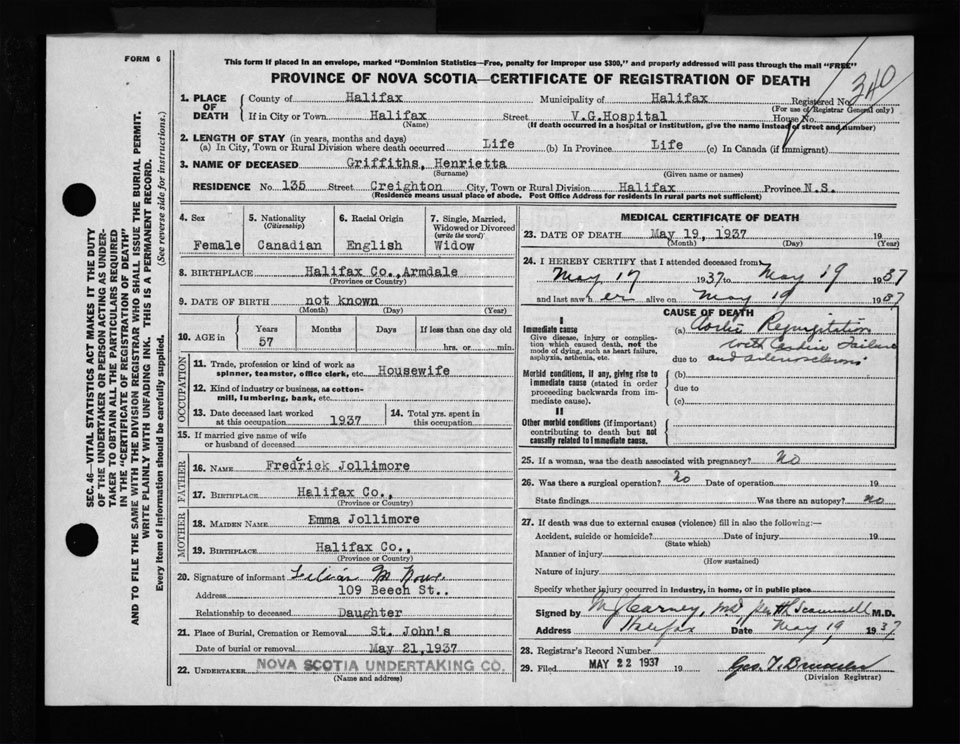 FORM 6
This form if placed in an envelope, marked "Dominion Statistics—Free, penalty for improper use $300," and properly addressed will pass through the mail "FREE"
PROVINCE OF NOVA SCOTIA—CERTIFICATE OF REGISTRATION OF DEATH
SEC. 46—VITAL STATISTICS ACT MAKES IT THE DUTY
OF THE UNDERTAKER OR PERSON ACTING AS UNDER-
TAKER TO OBTAIN ALL THE PARTICULARS REQUIRED
IN THE "CERTIFICATE OF REGISTRATION OF DEATH"
AND TO FILE THE SAME WITH THE DIVISION REGISTRAR WHO SHALL ISSUE THE BURIAL PERMIT.
WRITE PLAINLY WITH UNFADING INK. THIS IS A PERMANENT RECORD.
Every item of information should be carefully supplied. (See reverse side for instructions.)
1. PLACE OF DEATH
County of Halifax Municipality of Halifax Registered No. 340
(For use of Registrar General only)
If in City or Town Halifax Street V.G.Hospital House No.
(Name) (If death occurred in a hospital or institution, give the name instead of street and number)
2. LENGTH OF STAY (in years, months and days)
(a) In City, Town or Rural Division where death occurred Life (b) In Province Life (c) In Canada (if immigrant)
3. NAME OF DECEASED Griffiths, Henrietta
(Surname) (Given name or names)
RESIDENCE No. 135 Street Creighton City, Town or Rural Division Halifax Province N.S.
(Residence means usual place of abode. Post Office Address for residents in rural parts not sufficient)
4. Sex
Female
5. Nationality
(Citizenship)
Canadian
6. Racial Origin
English
7. Single, Married,
Widowed or Divorced
(write the word)
Widow
8. BIRTHPLACE Halifax Co.,Armdale
(Province or Country)
9. DATE OF BIRTH not known
(Month) (Day) (Year)
10. AGE in
Years Months Days If less than one day old
57 hrs. or min.
OCCUPATION
11. Trade, profession or kind of work as
spinner, teamster, office clerk, etc. Housewife
12. Kind of industry or business, as cotton-
mill, lumbering, bank, etc.
13. Date deceased last worked
at this occupation 1937
14. Total yrs. spent in
this occupation
15. If married give name of wife
or husband of deceased
FATHER
16. NAME Fredrick Jollimore
17. BIRTHPLACE Halifax Co.,
(Province or Country)
MOTHER
18. MAIDEN NAME Emma Jollimore
19. BIRTHPLACE Halifax Co.,
(Province or Country)
20. Signature of informant Lilian M
Address 109 Beech St..
Relationship to deceased Daughter
21. Place of Burial, Cremation or Removal St. John's
Date of burial or removal May 21,1937
22. UNDERTAKER NOVA SCOTIA UNDERTAKING CO.
(Name and address)
MEDICAL CERTIFICATE OF DEATH
23. DATE OF DEATH May 19, 1937 19
(Month) (Day) (Year)
24. I HEREBY CERTIFY that I attended deceased from
May 17 1937 to May 19 1937
and last saw her alive on May 19 1937
CAUSE OF DEATH
I
Immediate cause
Give disease, injury or compli-
cation which caused death, not the
mode of dying, such as heart failure,
asphyxia, asthenia, etc.
(a) Aortic Regurgitation
with Cardiac Failure
due to and arteriosclerosis
Morbid conditions, if any, giving rise to
immediate cause (stated in order
proceeding backwards from im-
mediate cause).
(b)
due to
(c)
II
Other morbid conditions (if important)
contributing to death but not
causally related to immediate cause.
25. If a woman, was the death associated with pregnancy? No
26. Was there a surgical operation? no Date of operation 19
State findings Was there an autopsy? no
27. If death was due to external causes (violence) fill in also the following:—
Accident, suicide or homicide? Date of injury 19
(State which)
Manner of injury
(How sustained)
Nature of injury
Specify whether injury occurred in industry, in home, or in public place
Signed by M J Carney, md per H Scammell M.D.
Address Halifax Date May 19 1937
28. Registrar's Record Number
29. Filed MAY 22 1937 19 Geo. T.
(Division Registrar)